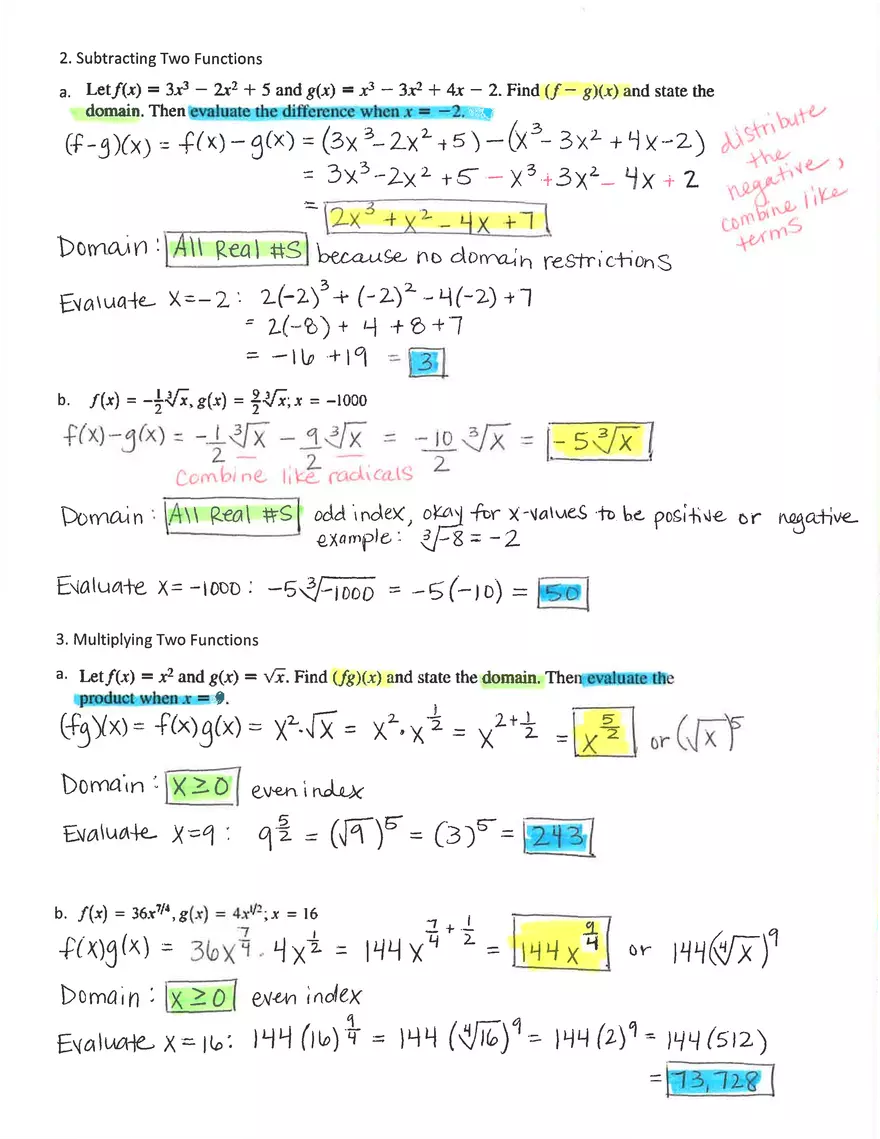 2. Subtracting Two Functions
a. Let f(x) = 3x³ − 2x² + 5 and g(x) = x³ − 3x² + 4x − 2. Find (f − g)(x) and state the
domain. Then evaluate the difference when x = −2.
(f-g)(x) = f(x) - g(x) = (3x³ - 2x² + 5) - (x³ - 3x² + 4x - 2)
= 3x³ - 2x² + 5 - x³ + 3x² - 4x + 2
= 2x³ + x² - 4x + 7
distribute
the
negative,
combine like
terms
Domain: All Real #S because no domain restrictions
Evaluate x = -2: 2(-2)³ + (-2)² - 4(-2) + 7
= 2(-8) + 4 + 8 + 7
= -16 + 19 = 3
b. f(x) = −1/2 ∛x, g(x) = 9/2 ∛x; x = −1000
f(x)-g(x) = -1/2 ∛x - 9/2 ∛x = -10/2 ∛x = -5∛x
Combine like radicals
Domain: All Real #S odd index, okay for x-values to be positive or negative
example: ∛-8 = -2
Evaluate x = -1000: -5∛-1000 = -5(-10) = 50
3. Multiplying Two Functions
a. Let f(x) = x² and g(x) = √x. Find (fg)(x) and state the domain. Then evaluate the
product when x = 9.
(fg)(x) = f(x)g(x) = x²·√x = x²·x^1/2 = x^2+1/2 = x^5/2 or (√x)⁵
Domain: x ≥ 0 even index
Evaluate x=9: 9^5/2 = (√9)⁵ = (3)⁵ = 243
b. f(x) = 36x^7/4, g(x) = 4x^1/2; x = 16
f(x)g(x) = 36x^7/4 · 4x^1/2 = 144x^7/4+1/2 = 144x^9/4 or 144(∜x)⁹
Domain: x ≥ 0 even index
Evaluate x = 16: 144(16)^9/4 = 144(∜16)⁹ = 144(2)⁹ = 144(512)
= 73,728